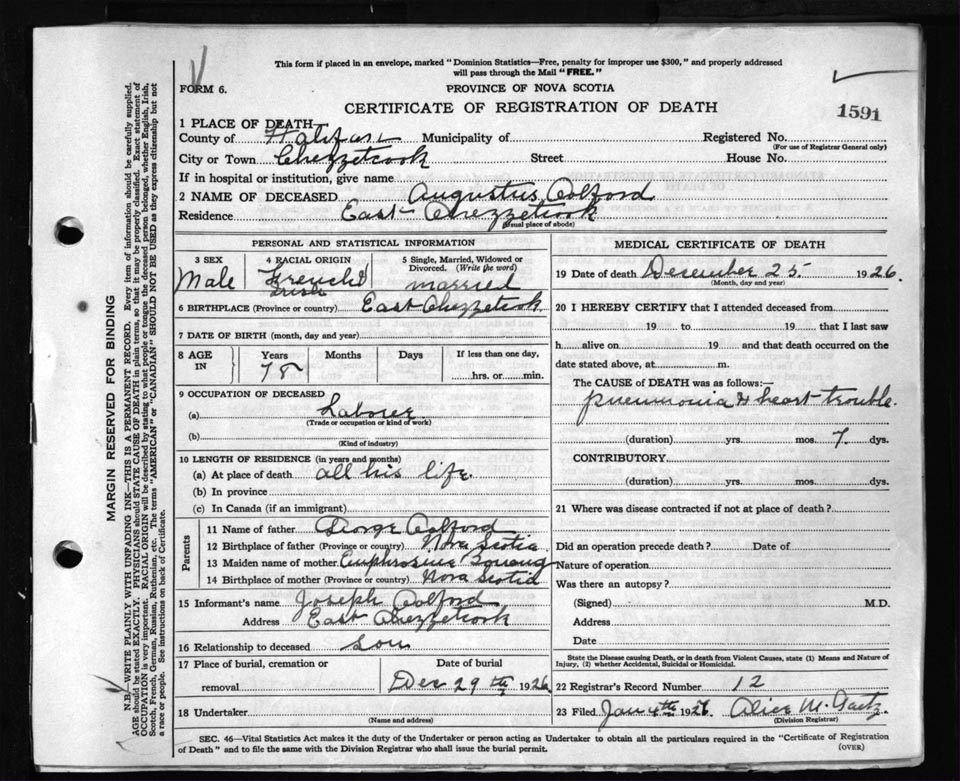 This form if placed in an envelope, marked "Dominion Statistics—Free, penalty for improper use $300," and properly addressed
will pass through the Mail "FREE."
FORM 6.
PROVINCE OF NOVA SCOTIA
CERTIFICATE OF REGISTRATION OF DEATH
1591
1 PLACE OF DEATH
County of Halifax Municipality of Registered No.
(For use of Registrar General only)
City or Town Chezzetcook Street House No.
If in hospital or institution, give name
2 NAME OF DECEASED Augustus Colford
Residence East Chezzetcook
(Usual place of abode)
PERSONAL AND STATISTICAL INFORMATION
3 SEX
Male
4 RACIAL ORIGIN
French &
Irish
5 Single, Married, Widowed or
Divorced. (Write the word)
married
6 BIRTHPLACE (Province or country) East Chezzetcook
7 DATE OF BIRTH (month, day and year)
8 AGE IN Years Months Days If less than one day,
78 hrs. or min.
9 OCCUPATION OF DECEASED
(a) Laborer
(Trade or occupation or kind of work)
(b)
(Kind of industry)
10 LENGTH OF RESIDENCE (in years and months)
(a) At place of death all his life
(b) In province
(c) In Canada (if an immigrant)
Parents
11 Name of father George Colford
12 Birthplace of father (Province or country) Nova Scotia
13 Maiden name of mother
14 Birthplace of mother (Province or country) Nova Scotia
15 Informant's name Joseph Colford
Address East Chezzetcook
16 Relationship to deceased son
17 Place of burial, cremation or
removal
Date of burial
Dec 29th 1926
18 Undertaker
(Name and address)
MEDICAL CERTIFICATE OF DEATH
19 Date of death December 25 1926.
(Month, day and year)
20 I HEREBY CERTIFY that I attended deceased from
19 to 19 that I last saw
h alive on 19 and that death occurred on the
date stated above, at m.
The CAUSE of DEATH was as follows:—
pneumonia & heart trouble.
(duration) yrs. mos. 7. dys.
CONTRIBUTORY
(duration) yrs. mos. dys.
21 Where was disease contracted if not at place of death?
Did an operation precede death? Date of
Nature of operation
Was there an autopsy?
(Signed) M.D.
Address
Date
State the Disease causing Death, or in death from Violent Causes, state (1) Means and Nature of
Injury, (2) whether Accidental, Suicidal or Homicidal.
22 Registrar's Record Number 12
23 Filed Jan 4th Alice M. Gaetz
(Division Registrar)
SEC. 46—Vital Statistics Act makes it the duty of the Undertaker or person acting as Undertaker to obtain all the particulars required in the "Certificate of Registration
of Death" and to file the same with the Division Registrar who shall issue the burial permit.
(OVER)
MARGIN RESERVED FOR BINDING
N.B.—WRITE PLAINLY WITH UNFADING INK—THIS IS A PERMANENT RECORD. Every item of information should be carefully supplied.
AGE should be stated EXACTLY. PHYSICIANS should STATE CAUSE OF DEATH in plain terms, so that it may be properly classified. Exact statement of
OCCUPATION is very important. RACIAL ORIGIN will be described by stating to what people or tongue the deceased person belonged, whether English, Irish,
Scotch, French, German, Russian, Ruthenian, etc. The terms "AMERICAN" or "CANADIAN" SHOULD NOT BE USED as they express citizenship but not
a race or people. See instructions on back of Certificate.